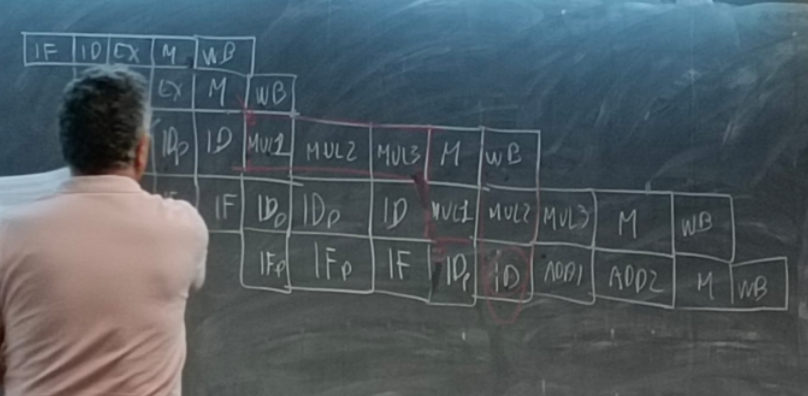 IF ID EX M WB
EX M WB
IDp ID MUL1 MUL2 MUL3 M WB
IF IDp IDp ID MUL1 MUL2 MUL3 M WB
IFp IFp IF IDp ID ADD1 ADD2 M WB